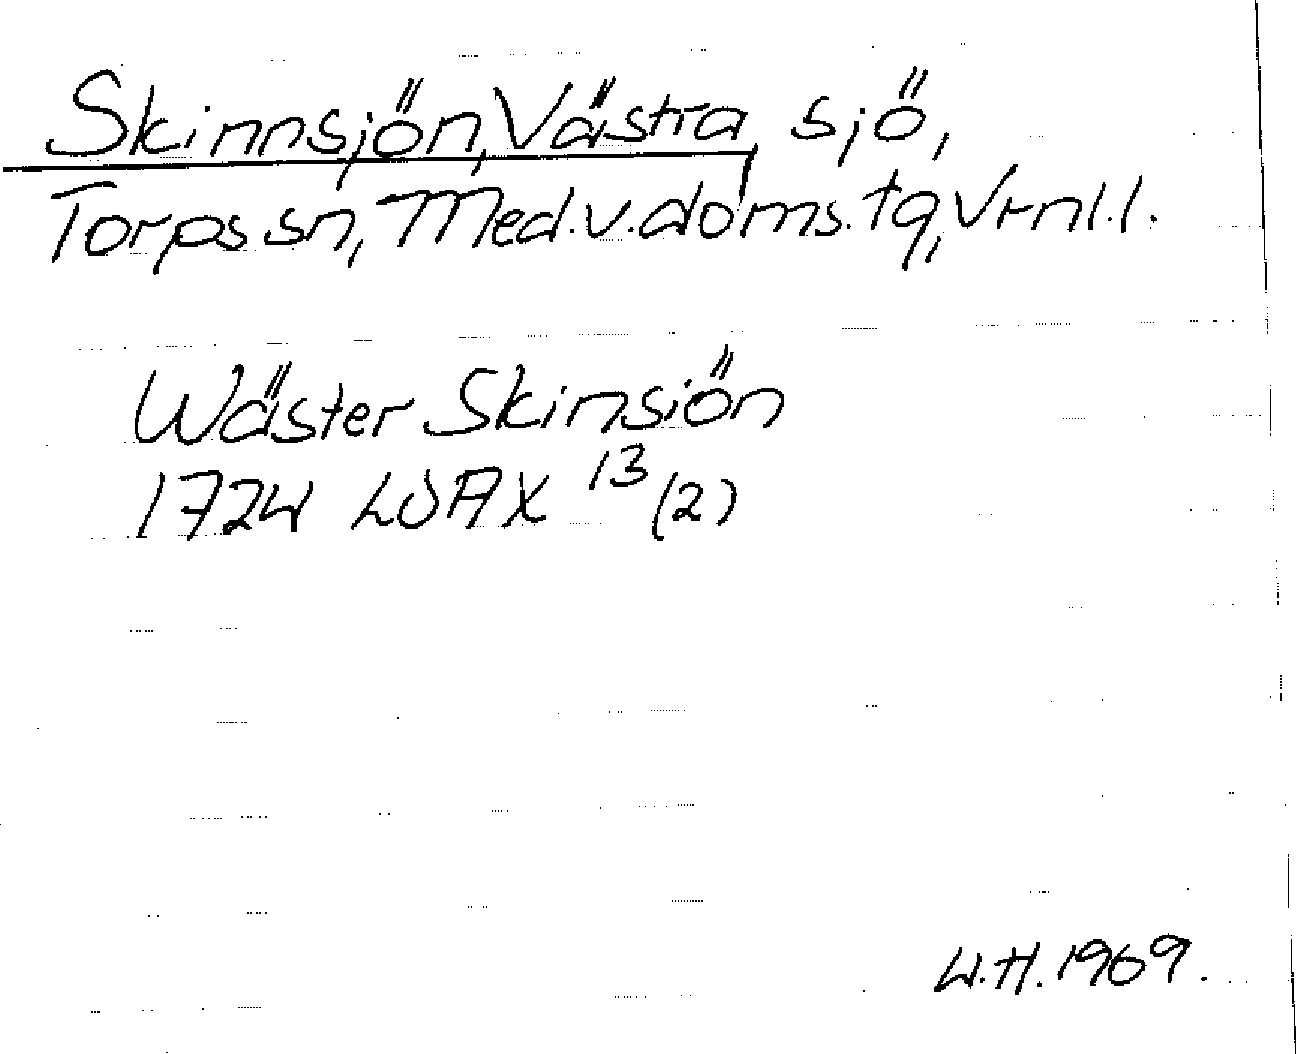 Skinnsjön, Västra, sjö,
Torps sn, Med.v.doms.tg, Vrnl.l.
Wäster Skinsiön
1724 LSAX 13 (2)
L.H. 1969.